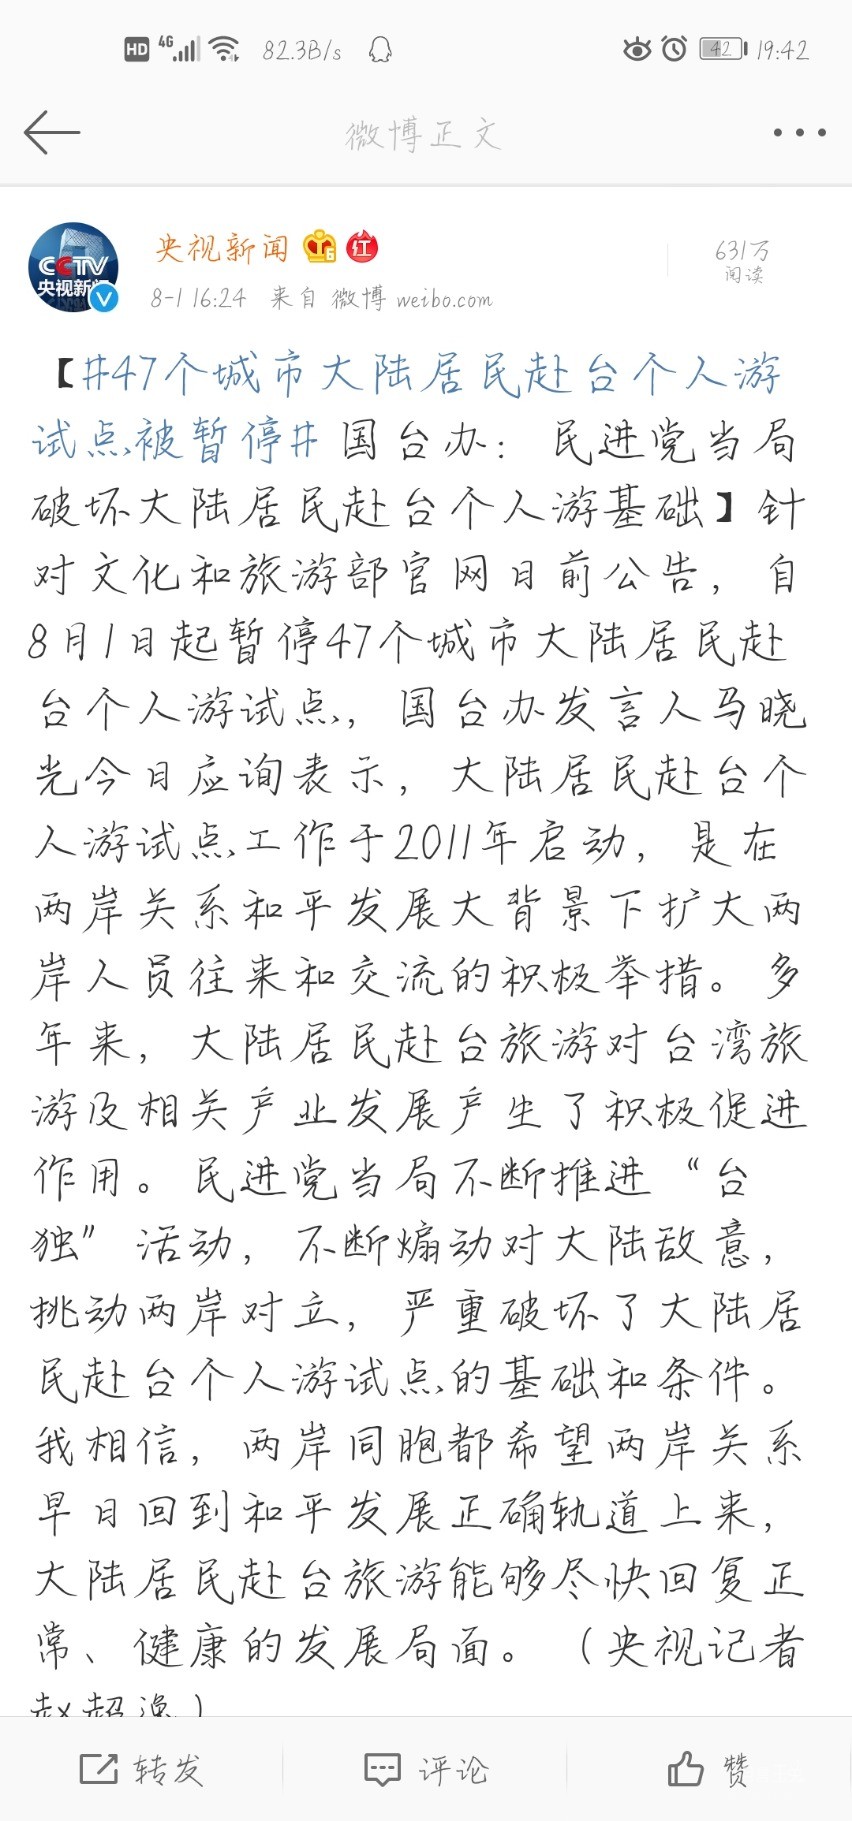 HD 4G 82.3B/s 42 19:42
微博正文
央视新闻
631万
阅读
CCTV
央视新闻
8-1 16:24 来自 微博 weibo.com
【#47个城市大陆居民赴台个人游
试点被暂停# 国台办：民进党当局
破坏大陆居民赴台个人游基础】针
对文化和旅游部官网日前公告，自
8月1日起暂停47个城市大陆居民赴
台个人游试点，国台办发言人马晓
光今日应询表示，大陆居民赴台个
人游试点工作于2011年启动，是在
两岸关系和平发展大背景下扩大两
岸人员往来和交流的积极举措。多
年来，大陆居民赴台旅游对台湾旅
游及相关产业发展产生了积极促进
作用。民进党当局不断推进“台
独”活动，不断煽动对大陆敌意，
挑动两岸对立，严重破坏了大陆居
民赴台个人游试点的基础和条件。
我相信，两岸同胞都希望两岸关系
早日回到和平发展正确轨道上来，
大陆居民赴台旅游能够尽快回复正
常、健康的发展局面。（央视记者
赵超逸）
转发 评论 赞